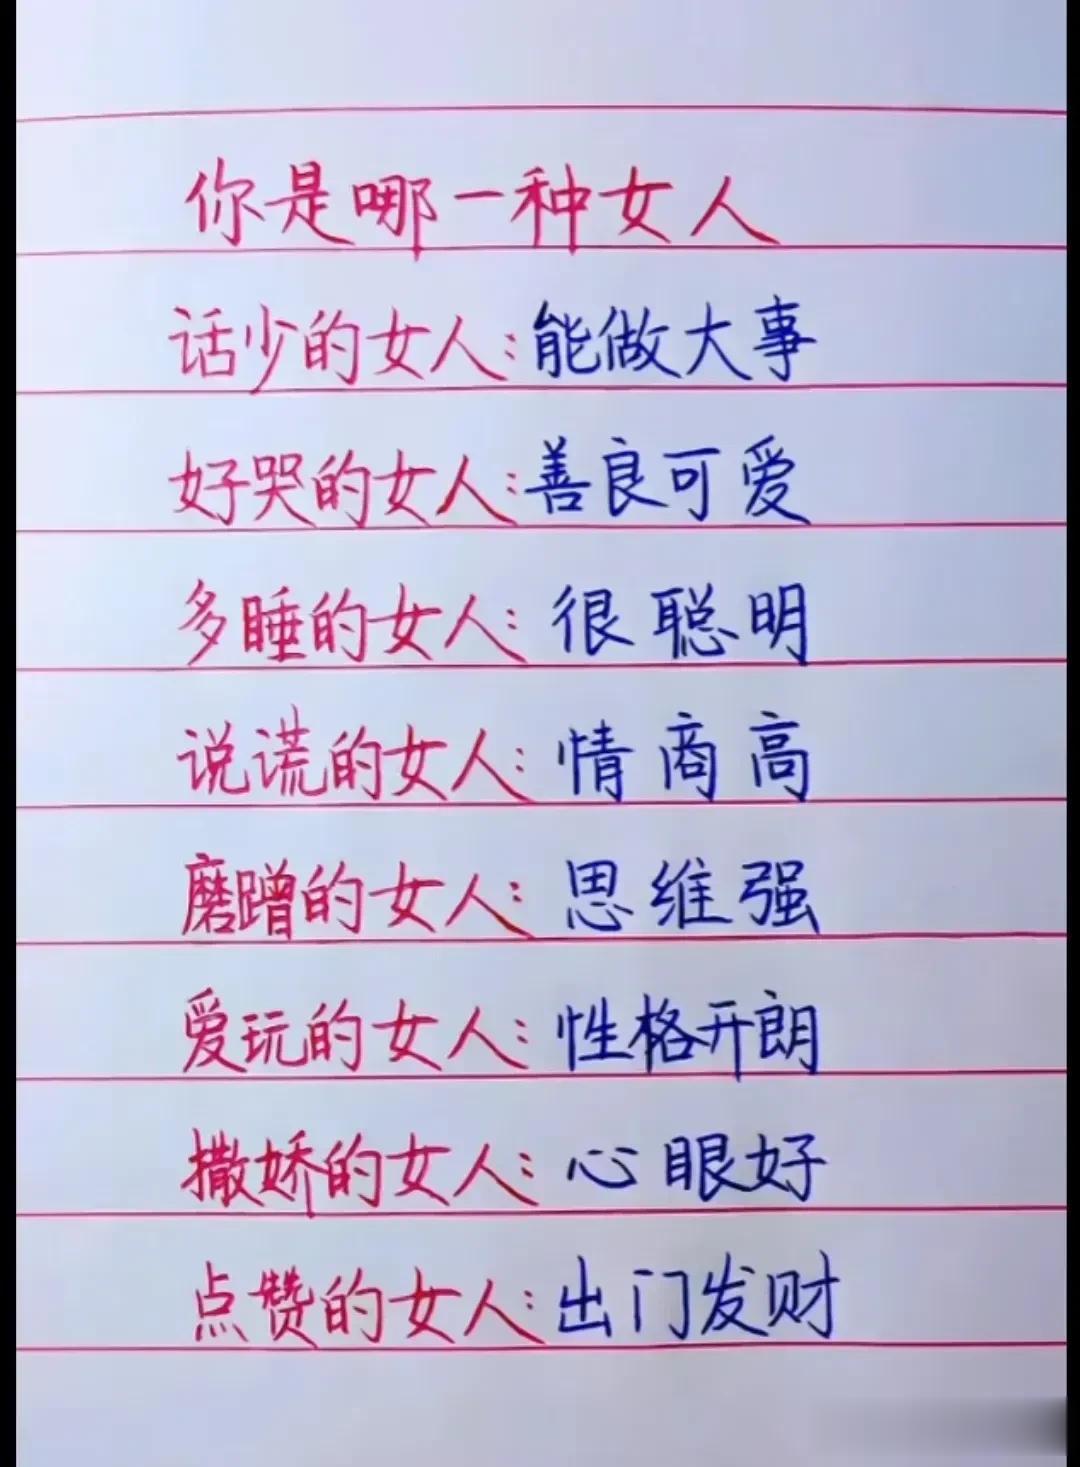 你是哪一种女人
话少的女人:能做大事
好哭的女人:善良可爱
多睡的女人:很聪明
说谎的女人:情商高
磨蹭的女人:思维强
爱玩的女人:性格开朗
撒娇的女人:心眼好
点赞的女人:出门发财